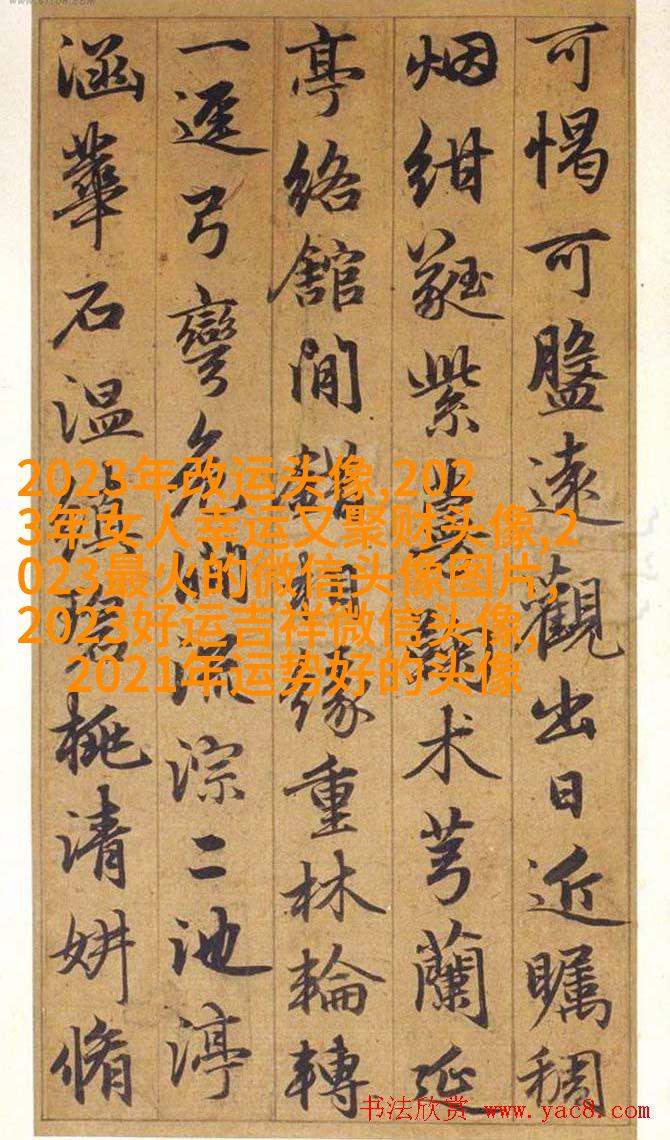 可愒可盥遠觀出日近矚稠
烟紺蕤紫术芎蘭延
亭絡館間緣重林輪轉
一逕弓彎危澗流淙二池渟
涵華石温桃清妍脩
2023年改运头像,202
3年女人幸运又聚财头像,2
023最火的微信头像图片,
2023好运吉祥微信头像,
2021年运势好的头像
书法欣赏 www.yac8.com